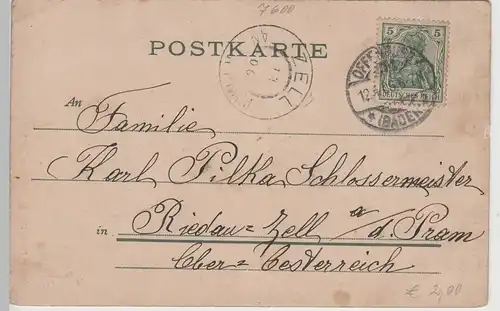 7600
POSTKARTE
ZELL
5
DEUTSCHES REICH
OFFENBURG
12.
* (BADEN)
An
Familie
Karl Pilka Schlossermeister
in Riedau=Zell a/d. Pram
Ober=Oesterreich
€ 2,00